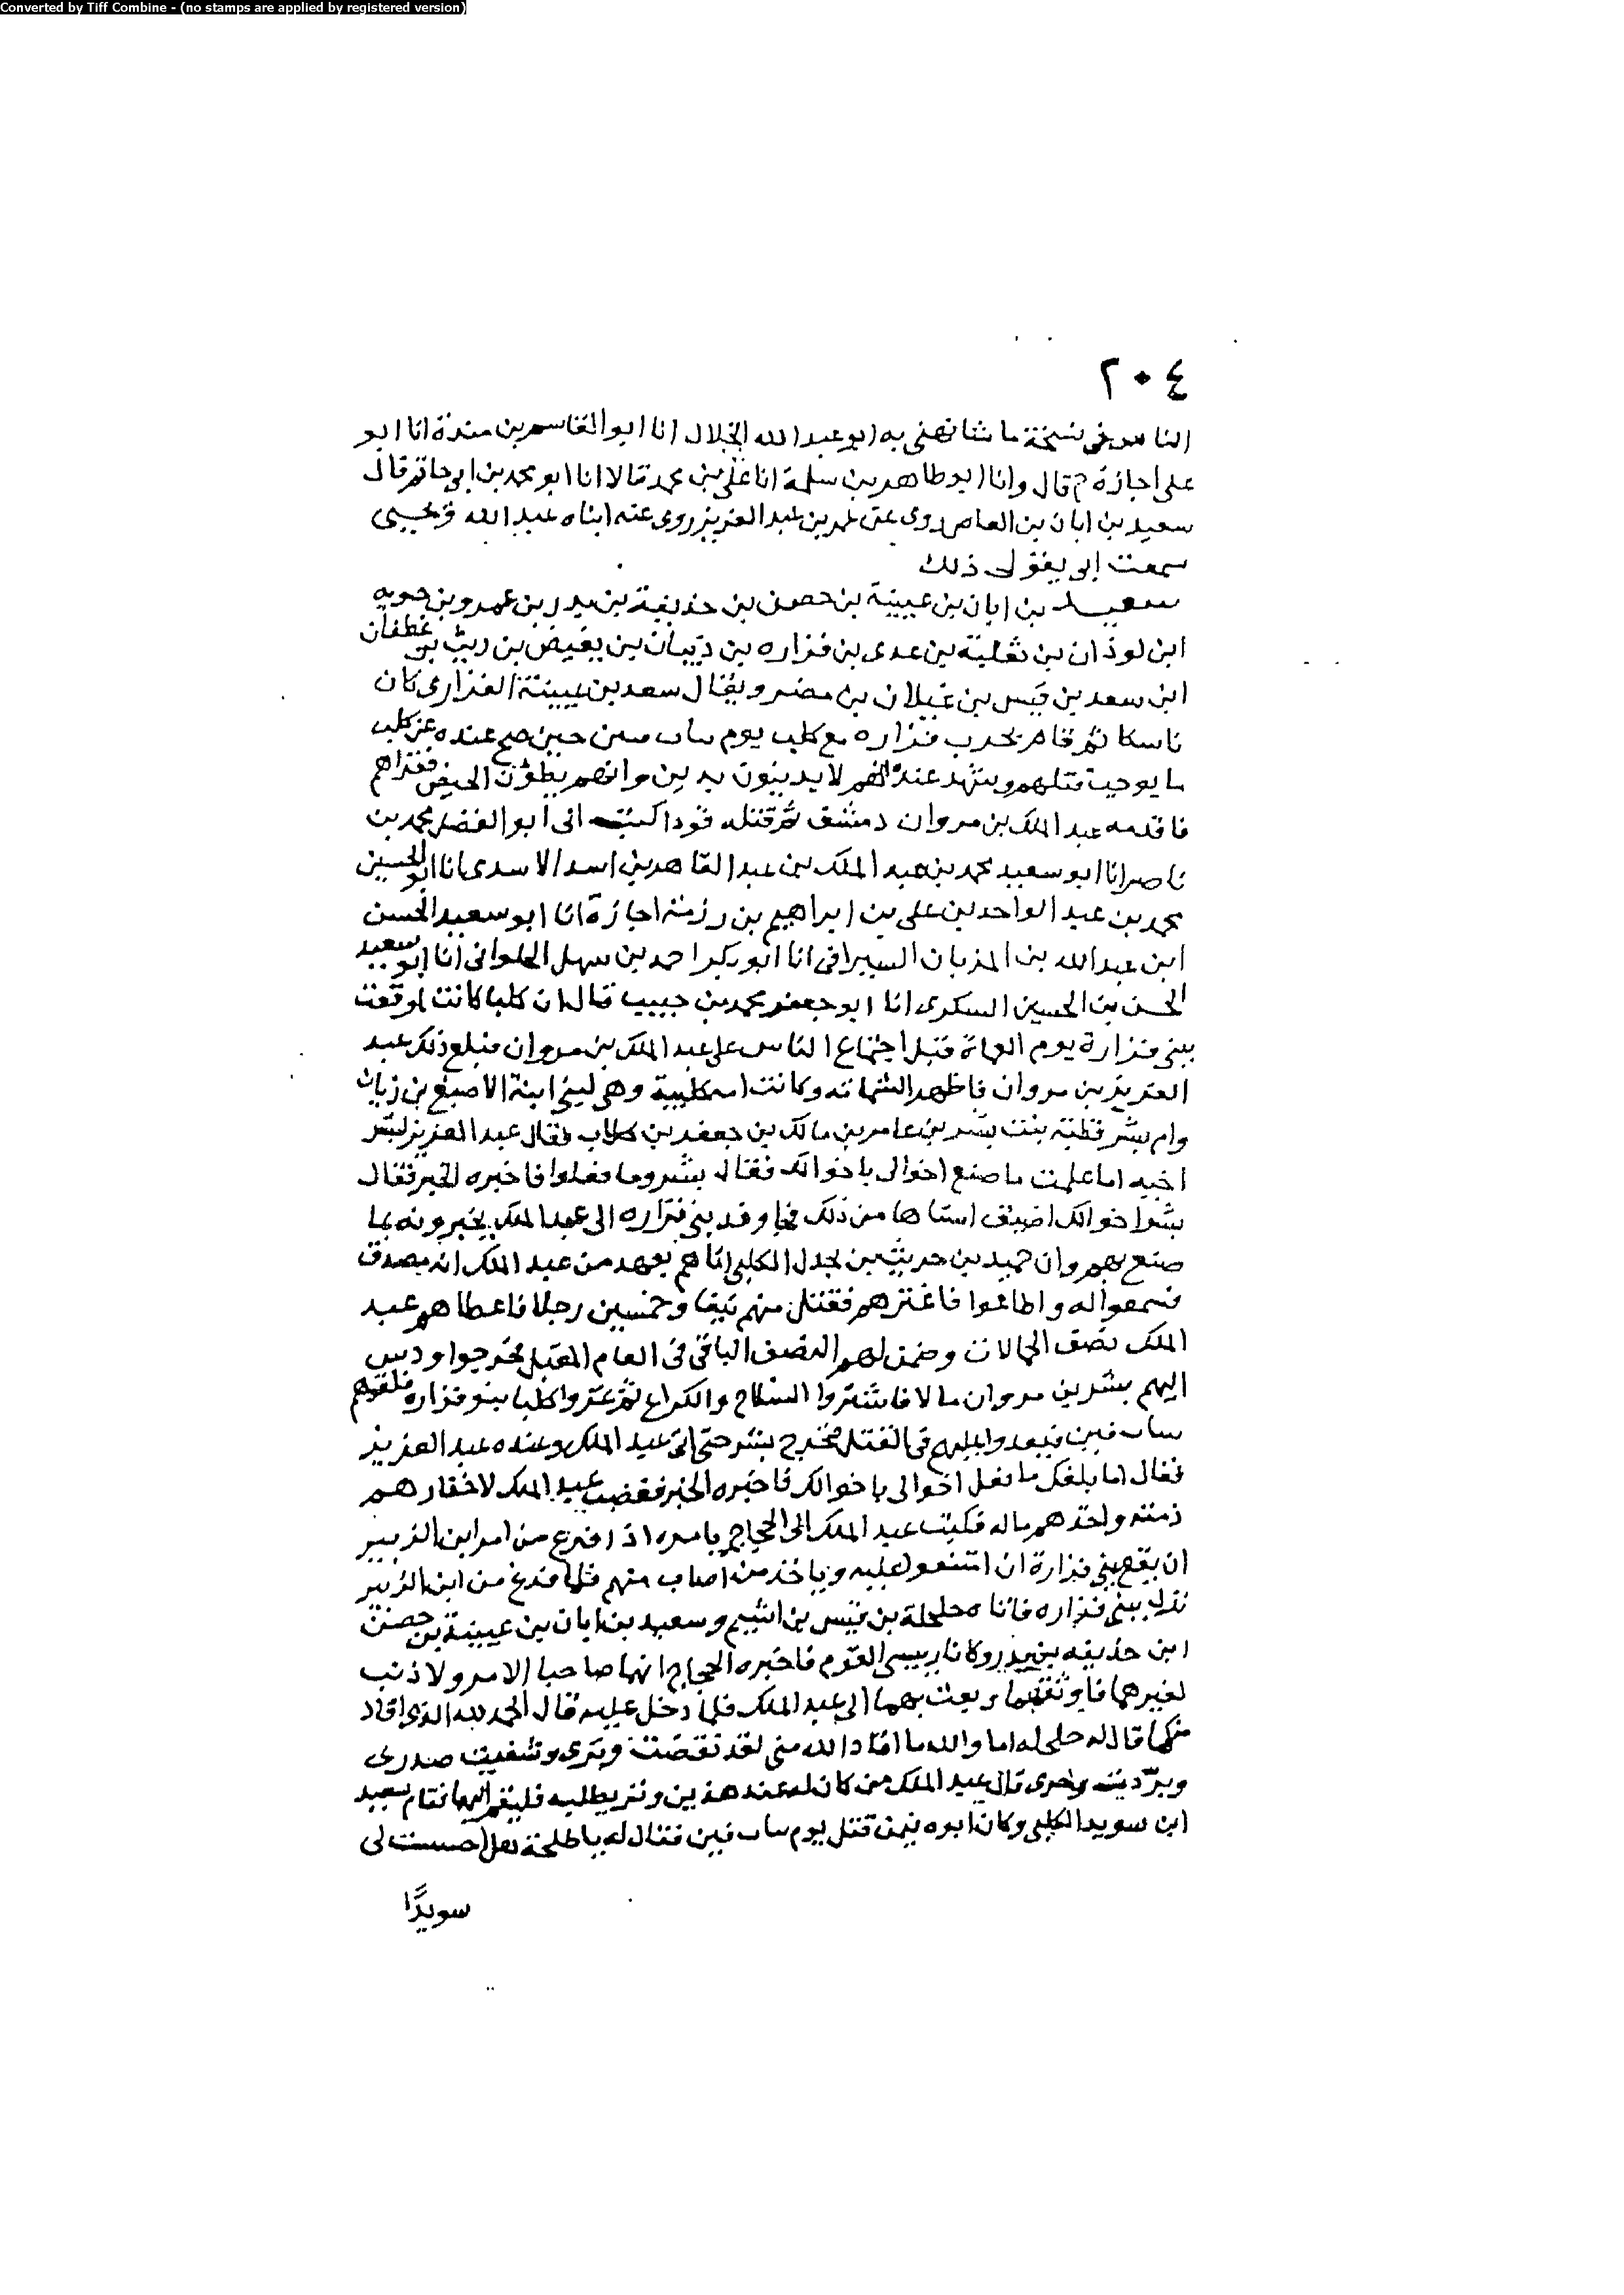 Converted by Tiff Combine - (no stamps are applied by registered version)
٢٠٤
الناس في نسخة ما شافهني به ابو عبد الله الخلال انا ابو القاسم بن مندة انا ابو
على اجازة ح قال وانا ابو طاهر بن سلمة انا على بن محمد قالا انا ابو محمد بن ابى حاتم قال
سعيد بن ابان بن العاص روى عن عمر بن عبد العزيز روى عنه ابناه عبد الله ويحيى
سمعت ابى يقول ذلك
سعيد بن ابان بن عيينة بن حصن بن حذيفة بن بدر بن عمرو بن جويه
ابن لوذان بن ثعلبة بن عدى بن فزاره بن ذبيان بن بغيض بن ريث بن غطفان
ابن سعد بن قيس بن غيلان بن مضر ويقال سعد بن عيينة الفزارى كان
ناسكا ثم قام بحرب فزاره مع كلب يوم بنات قين حين صح عنده عن كلب
ما يوجب قتلهم وشهد عنده انهم لا يدينون بدين وانهم يطؤن الحيض فغزاهم
فاقدمه عبد الملك بن مروان دمشق ثم قتله قودا كتب الى ابو الفضل محمد بن
ناصر انا ابو سعيد محمد بن عبد الملك بن عبد القاهر بن اسد الاسدى انا ابو الحسين
محمد بن عبد الواحد بن على بن ابراهيم بن رزمة اجازة انا ابو سعيد الحسن
ابن عبد الله بن المرزبان السيرافى انا ابو بكر احمد بن سهل الحلوانى انا ابو سعيد
الحسن بن الحسين السكرى انا ابو جعفر محمد بن حبيب قال ان كلبا كانت اوقعت
ببنى فزارة يوم العاه قبل اجتماع الناس على عبد الملك بن مروان فبلغ ذلك عبد
العزيز بن مروان فاظهر الشماتة وكانت امه كلبية وهى ليلى ابنة الاصبغ بن زبان
وام بشر قطية بنت بشر بن عامر بن مالك بن جعفر بن كلاب فقال عبد العزيز لبشر
اخيه اما علمت ما صنع اخوالى باخوالك فقال بشر وما فعلوا فاخبره الخبر فقال
بشر اخوالك اضيق استاها من ذلك فجاء وفد بنى فزاره الى عبد الملك يخبرونه بما
صنع بهم وان حميد بن حريث بن بجدل الكلبى اتاهم بعهد من عبد الملك انه مصدق
فسمعوا له واطاعوا فاغترهم فقتل منهم نيفا وخمسين رجلا فاعطاهم عبد
الملك نصف الحمالات وضمن لهم النصف الباقى فى العام المقبل فخرجوا ودس
اليهم بشر بن مروان مالا فاشتروا السلاح والكراع ثم غزوا كلبا بنو فزاره فلقوهم
ببنات قين فتعدوا عليهم فى القتل فخرج بشر حتى اتى عبد الملك وعنده عبد العزيز
فقال اما بلغك ما فعل اخوالى باخوالك فاخبره الخبر فغضب عبد الملك لاخفارهم
ذمته واخذهم ماله فكتب عبد الملك الى الحجاج يامره اذا فرغ من امر ابن الزبير
ان يقع ببنى فزارة ان امتنعوا عليه وياخذ من اصاب منهم فلما فرغ من ابن الزبير
نزل ببنى فزاره فاتاه حلحلة بن قيس بن اشيم وسعيد بن ابان بن عيينة بن حصن
ابن حذيفه بن بدر وكانا رييسى القوم فاخبره الحجاج انهما صاحبا الامر ولا ذنب
لغيرهما فاوثقهما وبعث بهما الى عبد الملك فلما دخل عليه قال الحمد لله الذى اقاد
منكما قال له حلحله اما والله ما اقاد الله منى لقد نقضت وترى وشفيت صدرى
وبردت وحرى قال عبد الملك من كان له عند هذين وتر يطلبه فليقم اليهما فقام سعيد
ابن سويد الكلبى وكان ابوه فيمن قتل يوم بنات قين فقال له يا حلحلة هل احسست لى
سويدًا